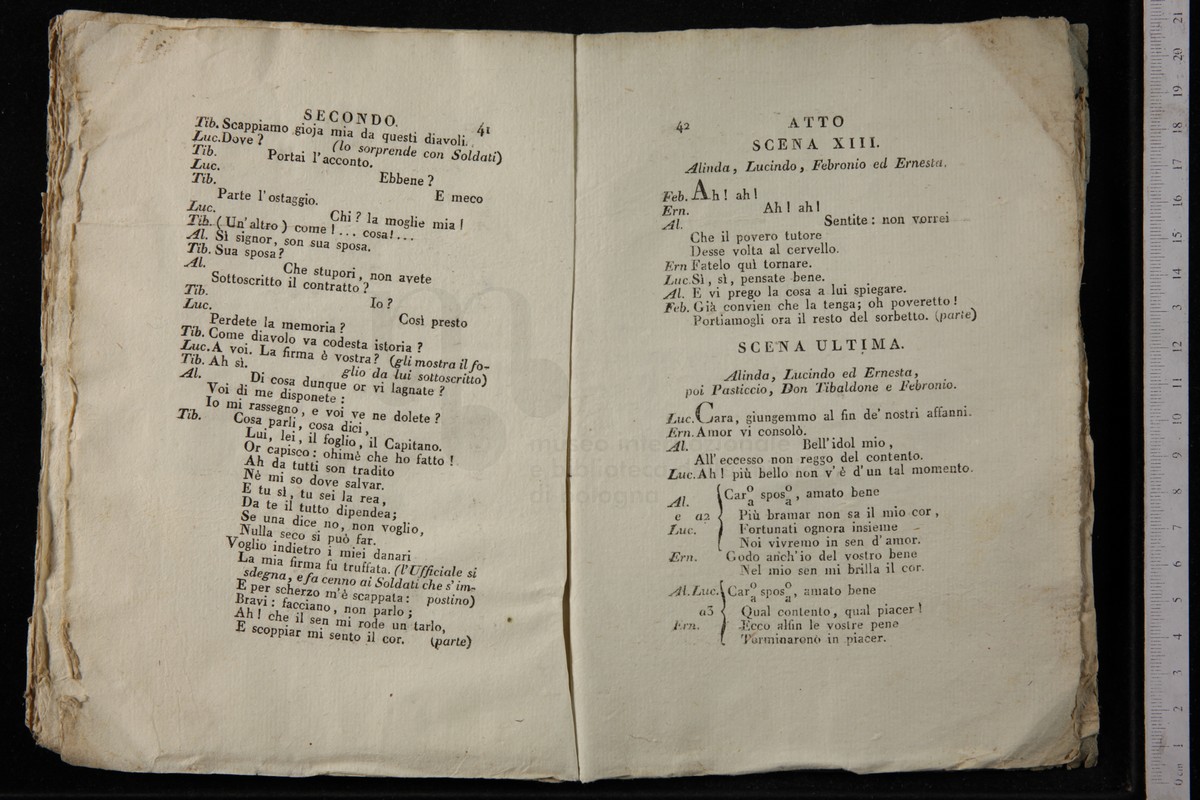 SECONDO. 41
Tib. Scappiamo gioja mia da questi diavoli.
Luc. Dove ? (lo sorprende con Soldati)
Tib. Portai l'acconto.
Luc. Ebbene ?
Tib. E meco
Parte l'ostaggio.
Luc. Chi ? la moglie mia !
Tib. ( Un' altro ) come ! ... cosa! ...
Al. Sì signor, son sua sposa.
Tib. Sua sposa ?
Al. Che stupori, non avete
Sottoscritto il contratto ?
Tib. Io ?
Luc. Così presto
Perdete la memoria ?
Tib. Come diavolo va codesta istoria ?
Luc. A voi. La firma è vostra? (gli mostra il fo-
Tib. Ah sì. glio da lui sottoscritto)
Al. Di cosa dunque or vi lagnate ?
Voi di me disponete :
Io mi rassegno, e voi ve ne dolete ?
Tib. Cosa parli, cosa dici,
Lui, lei, il foglio, il Capitano.
Or capisco : ohimè che ho fatto !
Ah da tutti son tradito
Nè mi so dove salvar.
E tu sì, tu sei la rea,
Da te il tutto dipendea;
Se una dice no, non voglio,
Nulla seco si può far.
Voglio indietro i miei danari
La mia firma fu truffata. (l'Ufficiale si
sdegna, e fa cenno ai Soldati che s'im-
E per scherzo m'è scappata : postino)
Bravi : facciano, non parlo ;
Ah ! che il sen mi rode un tarlo,
E scoppiar mi sento il cor. (parte)
42 ATTO
SCENA XIII.
Alinda, Lucindo, Febronio ed Ernesta.
Feb. Ah ! ah !
Ern. Ah ! ah !
Al. Sentite : non vorrei
Che il povero tutore
Desse volta al cervello.
Ern Fatelo quì tornare.
Luc. Sì, sì, pensate bene.
Al. E vi prego la cosa a lui spiegare.
Feb. Già convien che la tenga; oh poveretto !
Portiamogli ora il resto del sorbetto. (parte)
SCENA ULTIMA.
Alinda, Lucindo ed Ernesta,
poi Pasticcio, Don Tibaldone e Febronio.
Luc. Cara, giungemmo al fin de' nostri affanni.
Ern. Amor vi consolò.
Al. Bell'idol mio,
All' eccesso non reggo del contento.
Luc. Ah ! più bello non v'è d'un tal momento.
Al. Car o a spos o a, amato bene
e a2 Più bramar non sa il mio cor,
Luc. Fortunati ognora insieme
Noi vivremo in sen d'amor.
Ern. Godo anch'io del vostro bene
Nel mio sen mi brilla il cor.
Al. Luc. Car o a spos o a, amato bene
a3 Qual contento, qual piacer !
Ern. Ecco alfin le vostre pene
Terminarono in piacer.
museo internazionale
e biblioteca
di bologna